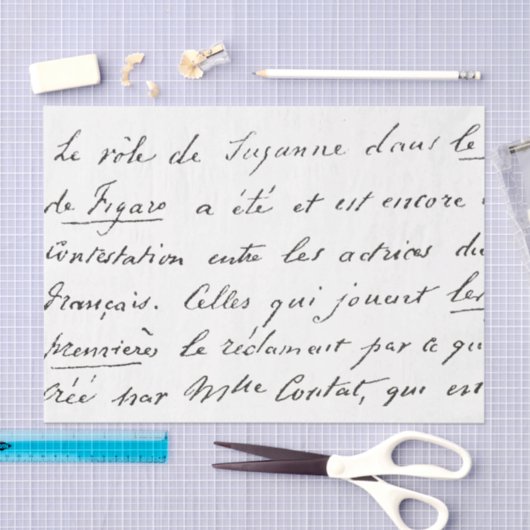 Le rôle de Suzanne dans le
de Figaro a été et est encore
Contestation entre les actrices du
Français. Celles qui jouent les
premières le réclament par ce qu
créé par Mlle Contat, qui en